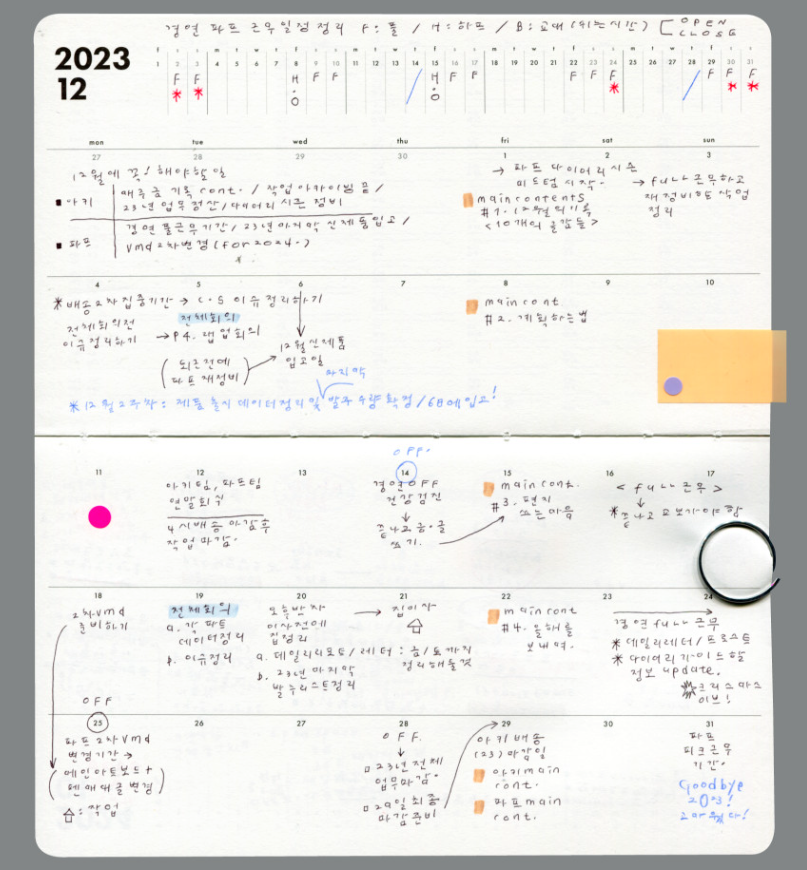 경연 파프 근무일정정리 F:풀 / H:하프 / B:교대 (쉬는시간) OPEN CLOSE
2023
12
F S S M T W T F S S M T W T F S S M T W T F S S M T W T F S S
1 2 3 4 5 6 7 8 9 10 11 12 13 14 15 16 17 18 19 20 21 22 23 24 25 26 27 28 29 30 31
F F H F F H F F F F F F F F
* * O O * * *
mon tue wed thu fri sat sun
27 28 29 30 1 2 3
12월에 꼭! 해야할일
■ 아키
매주 금 기록 cont. / 작업 아카이빙 끝 /
23년 업무정산 / 다이어리 시즌 정비
■ 파프
경연 풀근무기간 / 23년 마지막 신제품입고 /
vmd 2차변경 (for 2024.)
→ 파프 다이어리시즌
미드텀 시작.
main contents
#1. 12월의 기록
<10개의 글감들>
→ full 근무하고
재정비할 작업
정리
4 5 6 7 8 9 10
*배송 2차 집중기간 → C.S 이슈정리하기
전체회의전
이슈정리하기
전체회의
→ P4. 랩업회의
(퇴근전에
파프 재정비)
12월 신제품
입고일
main cont
#2. 계획하는법
마지막
*12월 2주차 : 제품 출시 데이터정리 및 발주 수량 확정 / 68에 입고!
OFF.
11 12 13 14 15 16 17
아키팀, 파프팀
연말회식
4시배송 마감후
작업마감.
경연 OFF
건강검진
↓
쓰기.
main cont.
#3. 편지
쓰는마음
< full 근무 >
↓
18 19 20 21 22 23 24
2차 vmd
준비하기
전체회의
a. 각 파트
데이터정리
b. 이슈정리
오후반차
이사전에
집정리
→ 집이사
a. 데일리리포트 / 레터 : 금/토까지
정리해둘것
b. 23년 마지막
발주리스트정리
main cont
#4. 올해를
보내며.
경연 full 근무
*데일리레터 / 프로스트
*다이어리가이드할
정보 update.
크리스마스
이브!
OFF
25 26 27 28 29 30 31
파프 2차 vmd
변경기간 →
(메인아트보드 +
펜매대글변경)
: 작업
OFF.
↓
□ 23년 전체
업무마감.
□ 29일 최종
마감준비
아키 배송
(23) 마감일
아키 main
cont.
파프 main
cont.
파프
피크근무
기간.
Goodbye
2023!
고마웠다!